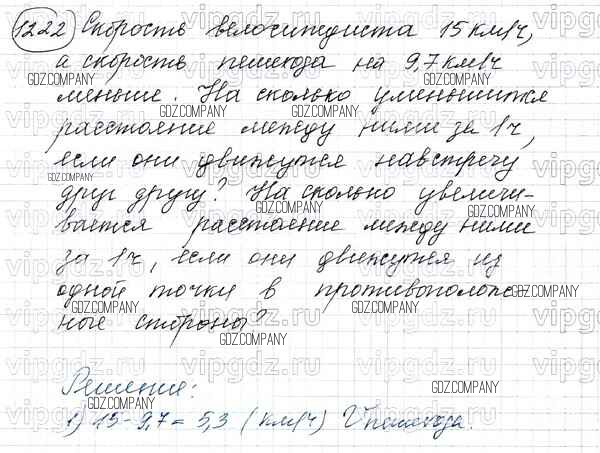 1222 Скорость велосипедиста 15 км/ч,
а скорость пешехода на 9,7 км/ч
меньше. На сколько уменьшится
расстояние между ними за 1ч,
если они движутся навстречу
друг другу? На сколько увеличи-
вается расстояние между ними
за 1ч, если они движутся из
одной точки в противополож
ные стороны?
Решение:
1) 15-9,7=5,3 (км/ч) V пешехода.